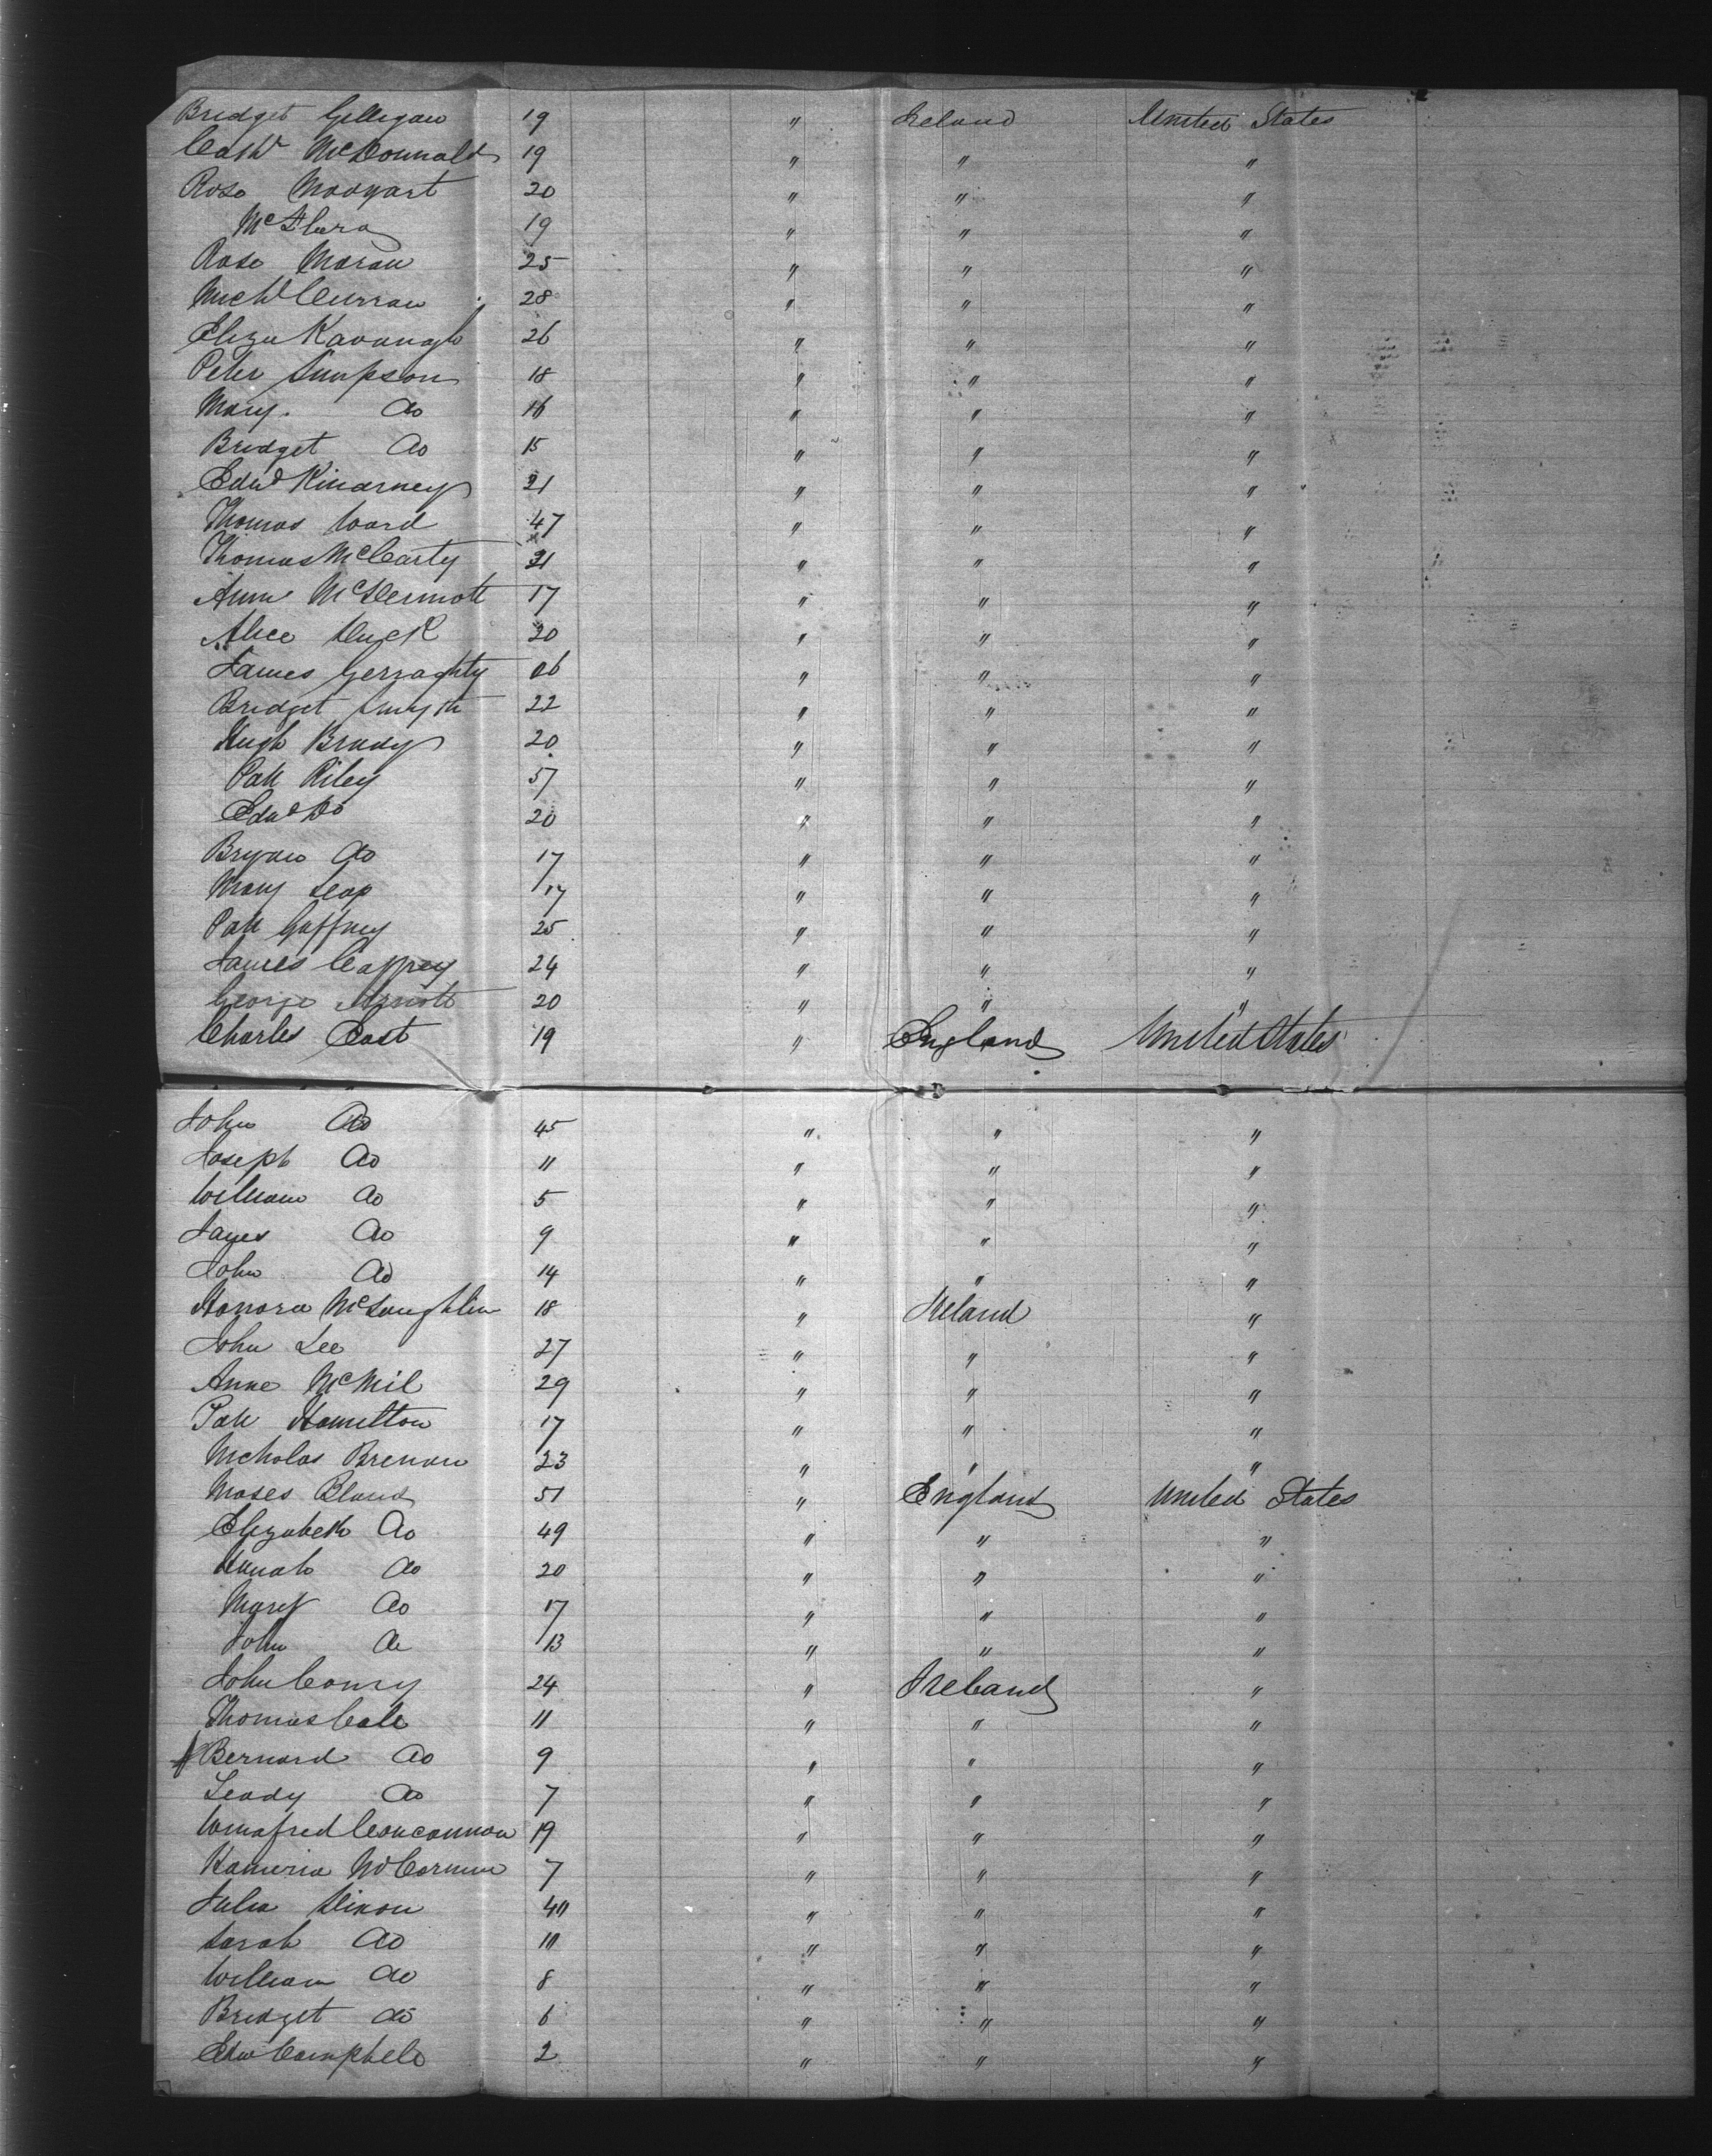 Bridget Gilligan 19 " Ireland United States
Cathe McDonnald 19 " " "
Rose 20 " " "
19 " " "
Rose Moran 25 " " "
Michl Curran 28 " " "
Eliza Kavanagh 26 " " "
Peter Simpson 18 " " "
Mary. do 16 " " "
Bridget do 15 " " "
Edwd Kinarney 21 " " "
Thomas Ward 47 " " "
Thomas McCarty 31 " " "
Anne McDermott 17 " " "
Alice 20 " " "
James Gerraghty " " "
Bridget Smyth 22 " " "
Hugh Brady 20 " " "
Patk Riley 57 " " "
Edwd Do 20 " " "
Bryan do 17 " " "
Mary 17 " " "
Patk Gaffney 25 " " "
James Caffrey 24 " " "
George Arnott 20 " " "
Charles East 19 " England United States
John do 45 " " "
Joseph do 11 " " "
William do 5 " " "
James do 9 " " "
John do 14 " " "
Honora McLaughlin 18 " Ireland "
John Lee 27 " " "
Anne McNeil 29 " " "
Patk Hamilton 17 " " "
Nicholas Brenan 23 " " "
Moses Bland 51 " England United States
Elizabeth do 49 " " "
Hanah do 20 " " "
Mary do 17 " " "
John do 13 " " "
John 24 " Ireland "
Thomas Cale 11 " " "
Bernard do 9 " " "
do 7 " " "
Winafred Concannon 19 " " "
7 " " "
Julia Dixon 40 " " "
Sarah do 10 " " "
William do 8 " " "
Bridget do 6 " " "
Edw Campbell 2 " " "